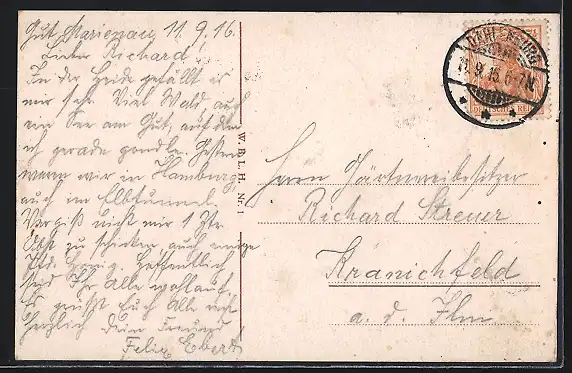 Gut Marienau 11.9.16.
Lieber Richard!
In der Heide gefällt es
mir sehr. Viel Wald, auch
ein See am Gut, auf dem
ich gerade gondle. Gestern
waren wir in Hamburg,
auch im Elbtunnel.
Vergiß nicht mir 1 Ztr.
Obst zu schicken auch einige
Pfd. Honig. Hoffentlich
seid Ihr Alle wohlauf.
Es grüßt Euch Alle recht
herzlich Dein Freund
Felix Ebert
W. B. L. H. Nr. 1
DAHLENBURG
11.9.16.6-7N
DEUTSCHES REICH
Herrn Gärtnereibesitzer
Richard Streuer
Kranichfeld
a. d. Ilm